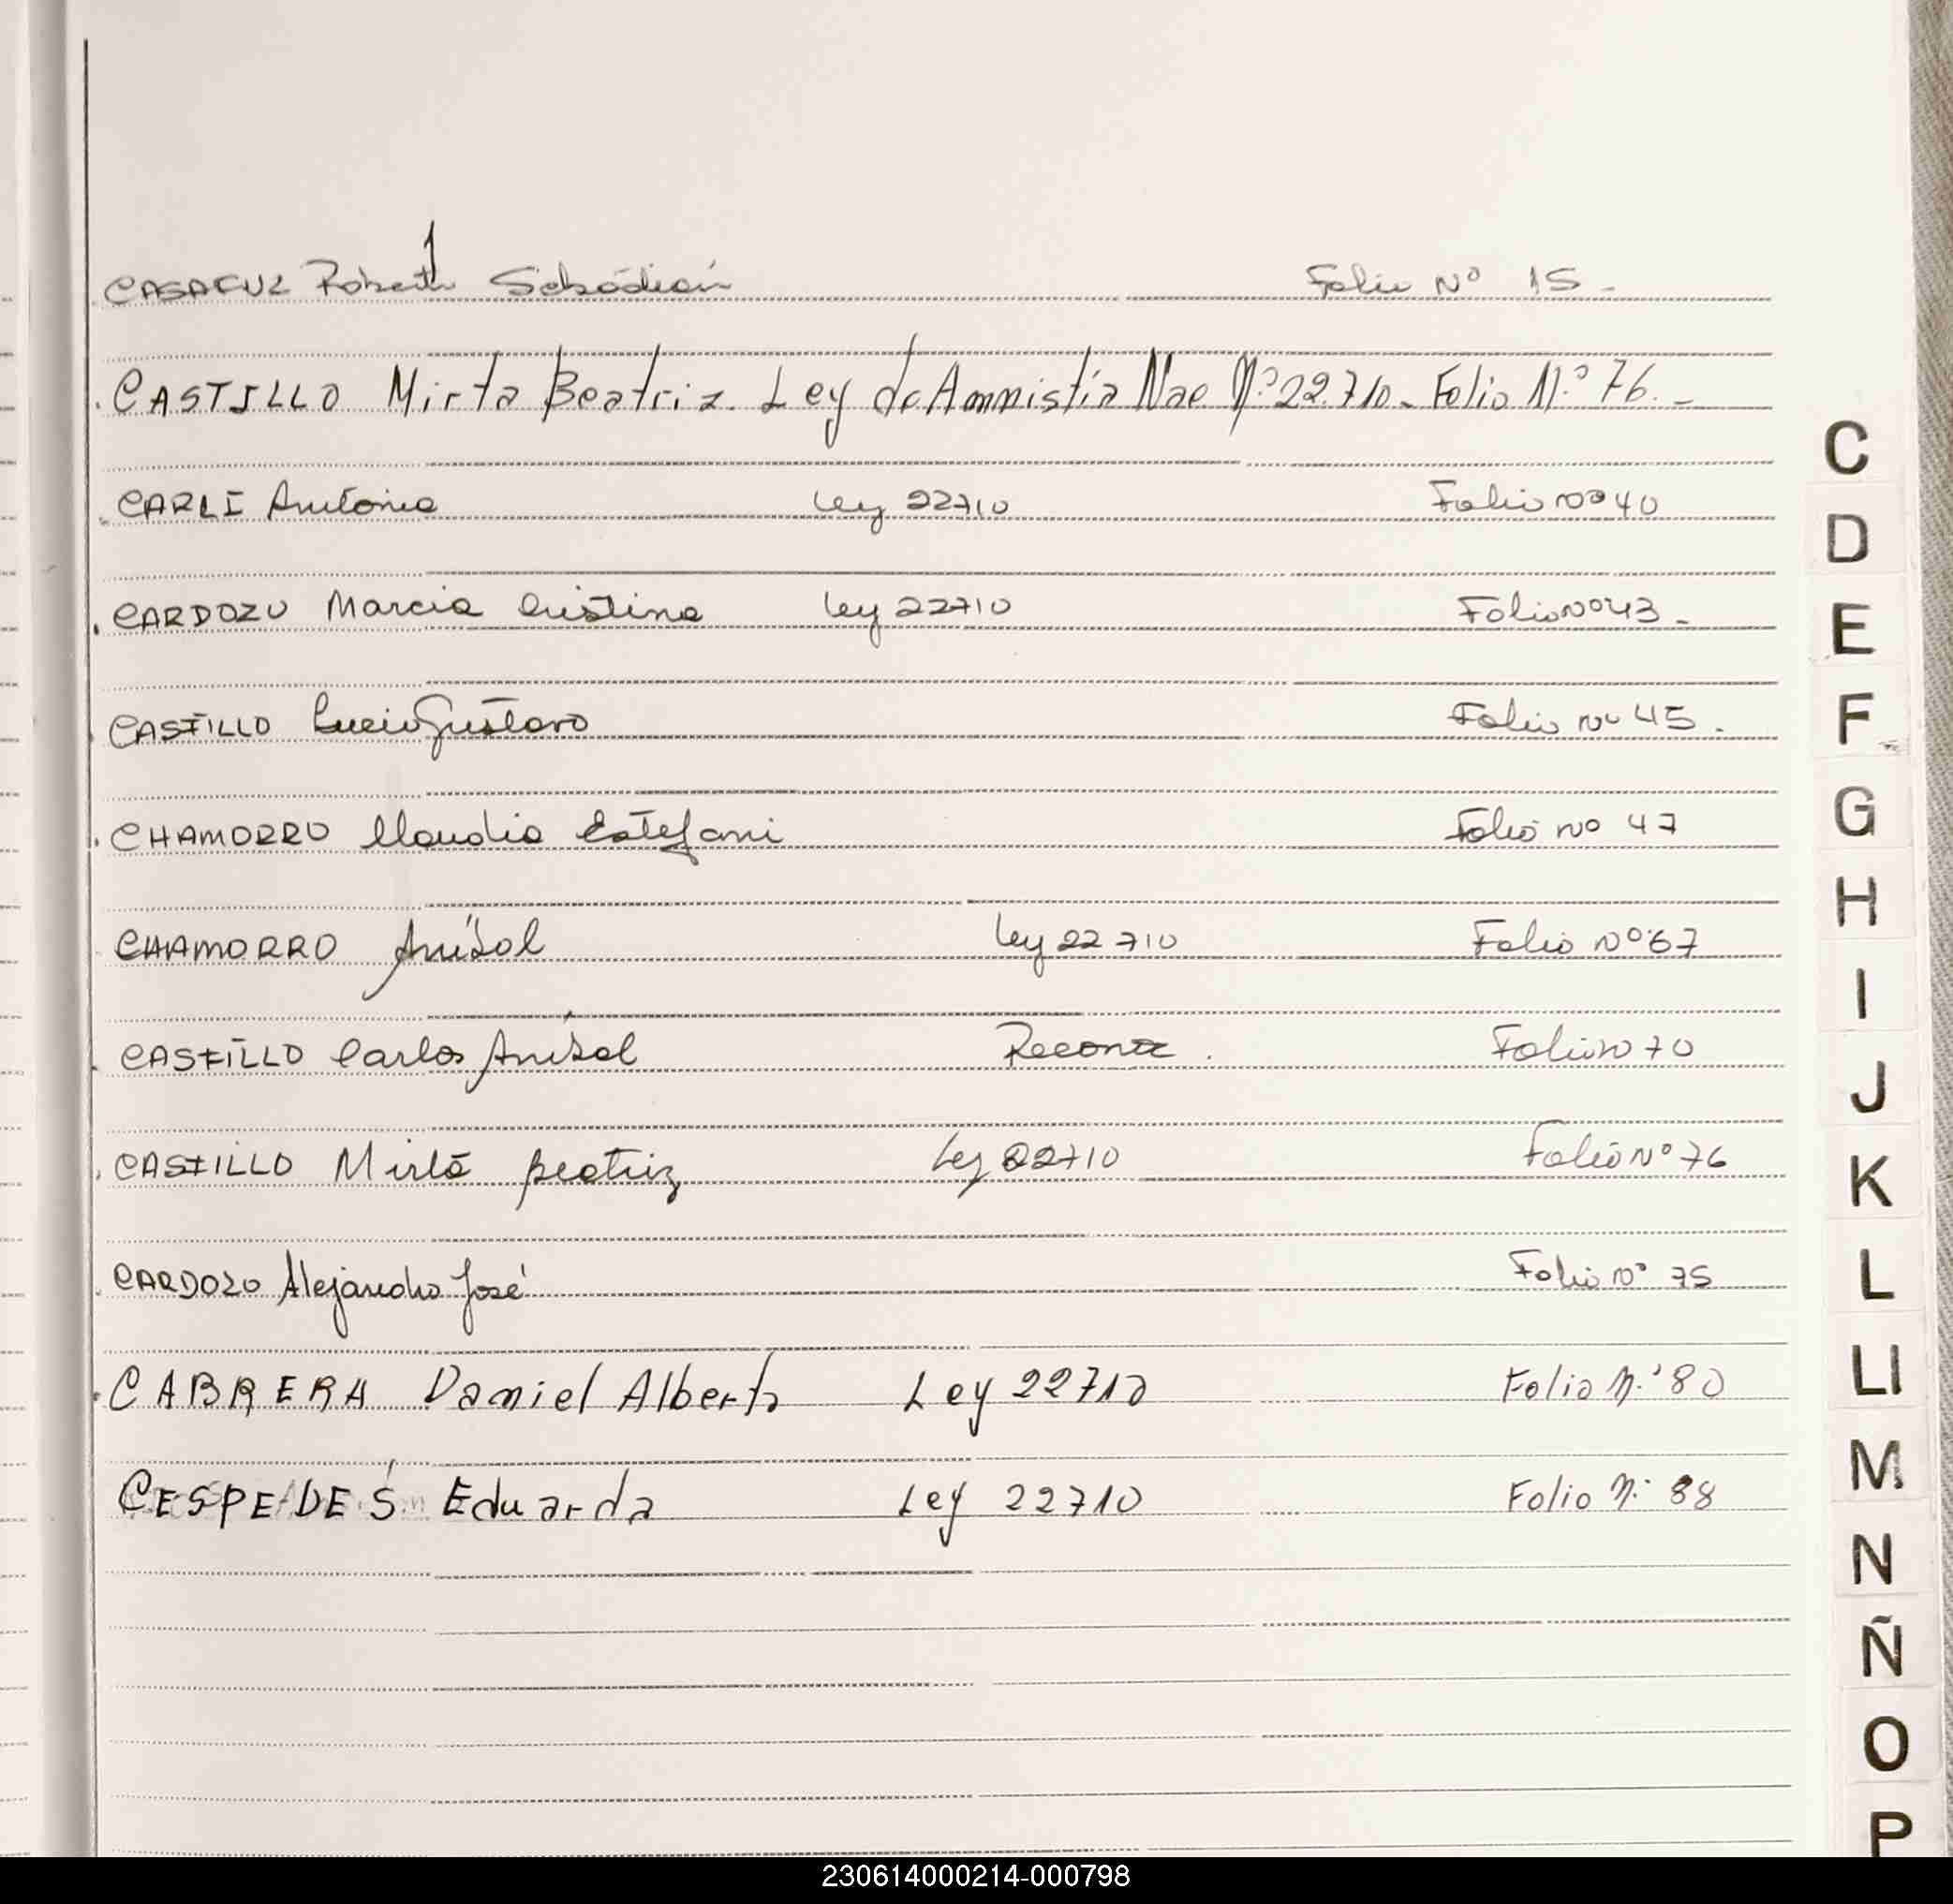 CASAFUZ Roberto Sebastián Folio Nº 15 -
CASTILLO Mirta Beatriz. Ley de Amnistía Nac Nº 22.710 - Folio Nº 76. -
CARLI Antonia Ley 22710 Folio nº 40
CARDOZO Marcia Cristina Ley 22710 Folio nº 43 -
CASTILLO Lucio Gustavo Folio nº 45.
CHAMORRO Claudia Estefani Folio nº 47
CHAMORRO Anibal Ley 22710 Folio Nº 67
CASTILLO Carlos Anibal Reconoc. Folio nº 70
CASTILLO Mirta Beatriz Ley 22710 Folio Nº 76
CARDOZO Alejandro José Folio nº 75
CABRERA Daniel Alberto Ley 22710 Folio N.º 80
CESPEDES Eduarda Ley 22710 Folio N.º 88
C
D
E
F
G
H
I
J
K
L
Ll
M
N
Ñ
O
P
230614000214-000798